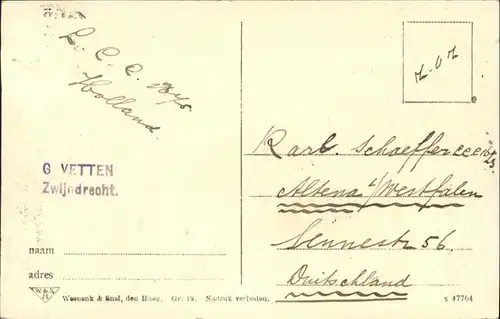 L. C. C.
Holland.
G VETTEN
Zwijndrecht.
naam
adres
W & S
Weenenk & Snel, den Haag. Gr. 19. Nadruk verboden.
Karl. Schaeffer
Altena i/Westfalen
Lennestr 56.
Duitschland
s 47764